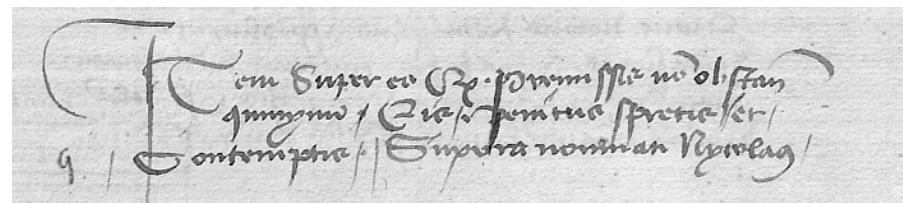 Item Super eo Qꝫ premissis nō obstan̄
quinymo / Eis / penitus spretis / et /
9 / Contemptis / Supra nominati Nycolaꝰ /